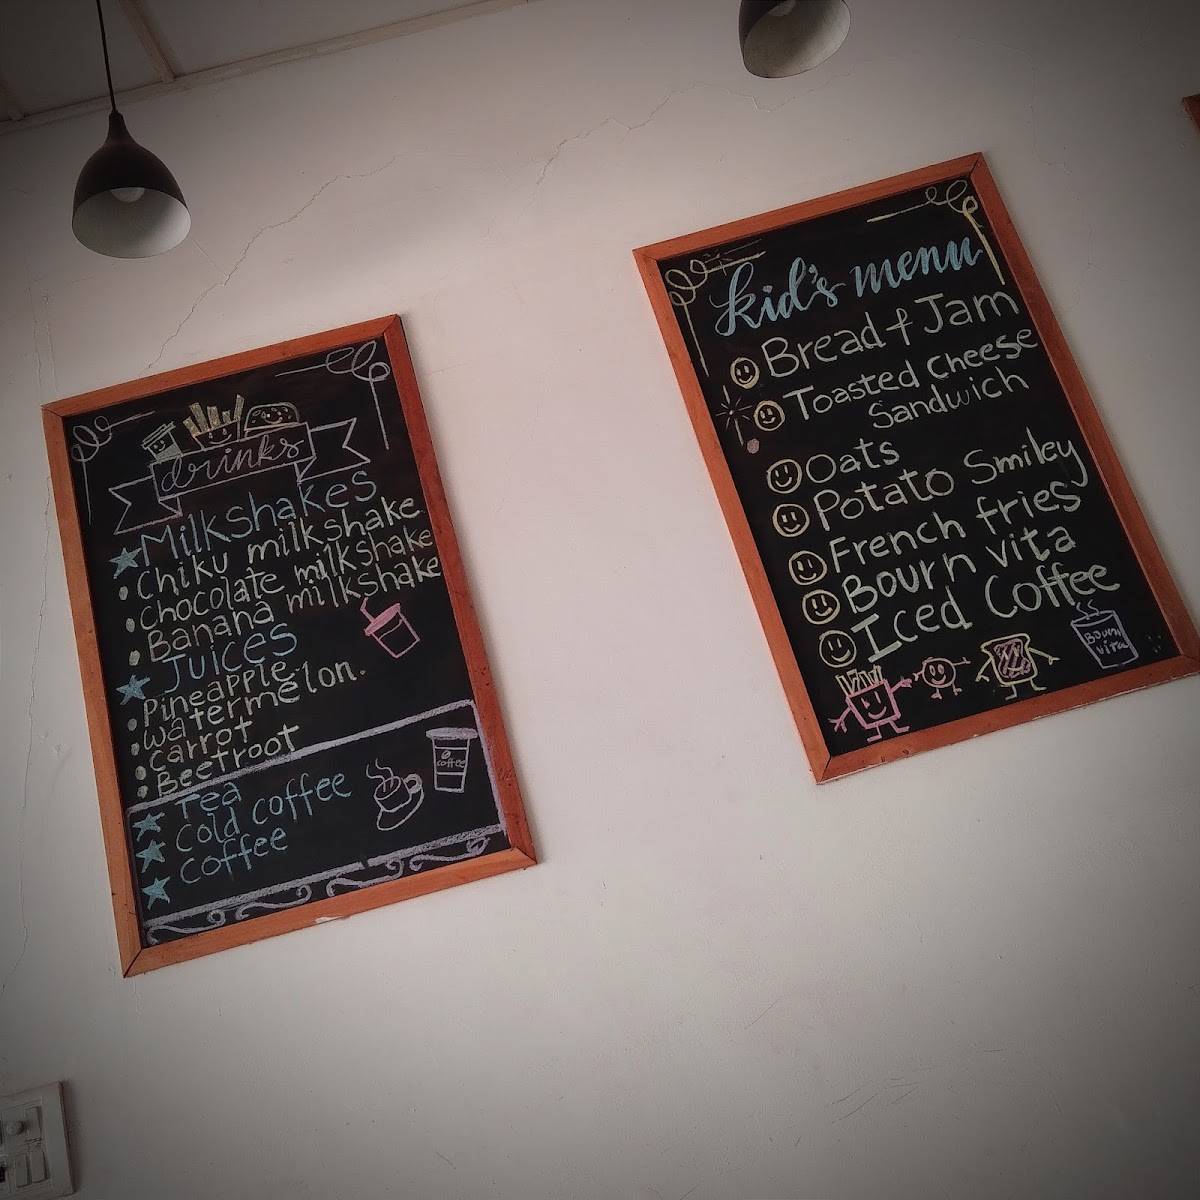 drinks
Milkshakes
Chiku milkshake
Chocolate milkshake
Banana milkshake
Juices
Pineapple.
Watermelon.
Carrot
Beetroot
Tea
Cold coffee
Coffee
coffee
kid's menu
Bread & Jam
Toasted Cheese
Sandwich
Oats
Potato Smiley
French fries
Bourn vita
Iced Coffee
Bourn
vita